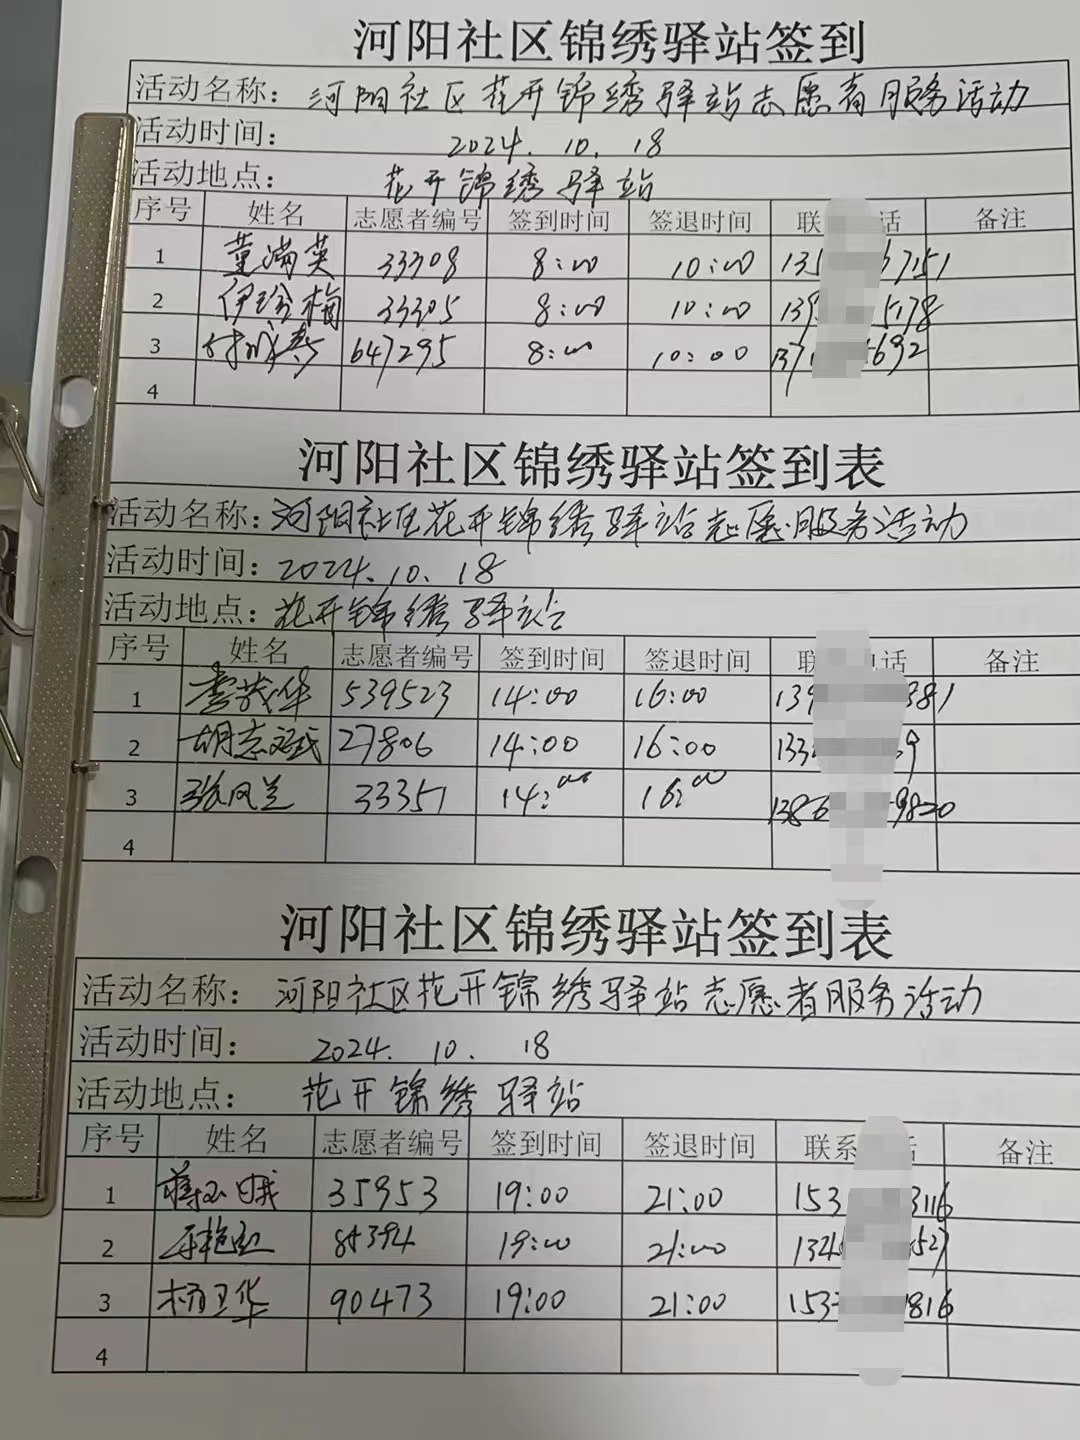 河阳社区锦绣驿站签到
活动名称: 河阳社区花开锦绣驿站志愿者服务活动
活动时间: 2024.10.18
活动地点: 花开锦绣驿站
序号 姓名 志愿者编号 签到时间 签退时间 联 话 备注
1 董满英 33308 8:00 10:00 135 7151
2 伊珍梅 33305 8:00 10:00 139 5178
3 647295 8:00 10:00 137 692
4
河阳社区锦绣驿站签到表
活动名称: 河阳社区花开锦绣驿站志愿服务活动
活动时间: 2024.10.18
活动地点: 花开锦绣驿站
序号 姓名 志愿者编号 签到时间 签退时间 联 话 备注
1 李茂华 539523 14:00 16:00 139 381
2 胡志斌 27806 14:00 16:00 133 9
3 张凤兰 33351 14:00 16:00 1386 9820
4
河阳社区锦绣驿站签到表
活动名称: 河阳社区花开锦绣驿站志愿者服务活动
活动时间: 2024.10.18
活动地点: 花开锦绣驿站
序号 姓名 志愿者编号 签到时间 签退时间 联系 话 备注
1 蒋玉娥 35953 19:00 21:00 153 3116
2 84394 19:00 21:00 134 527
3 杨卫华 90473 19:00 21:00 153 816
4